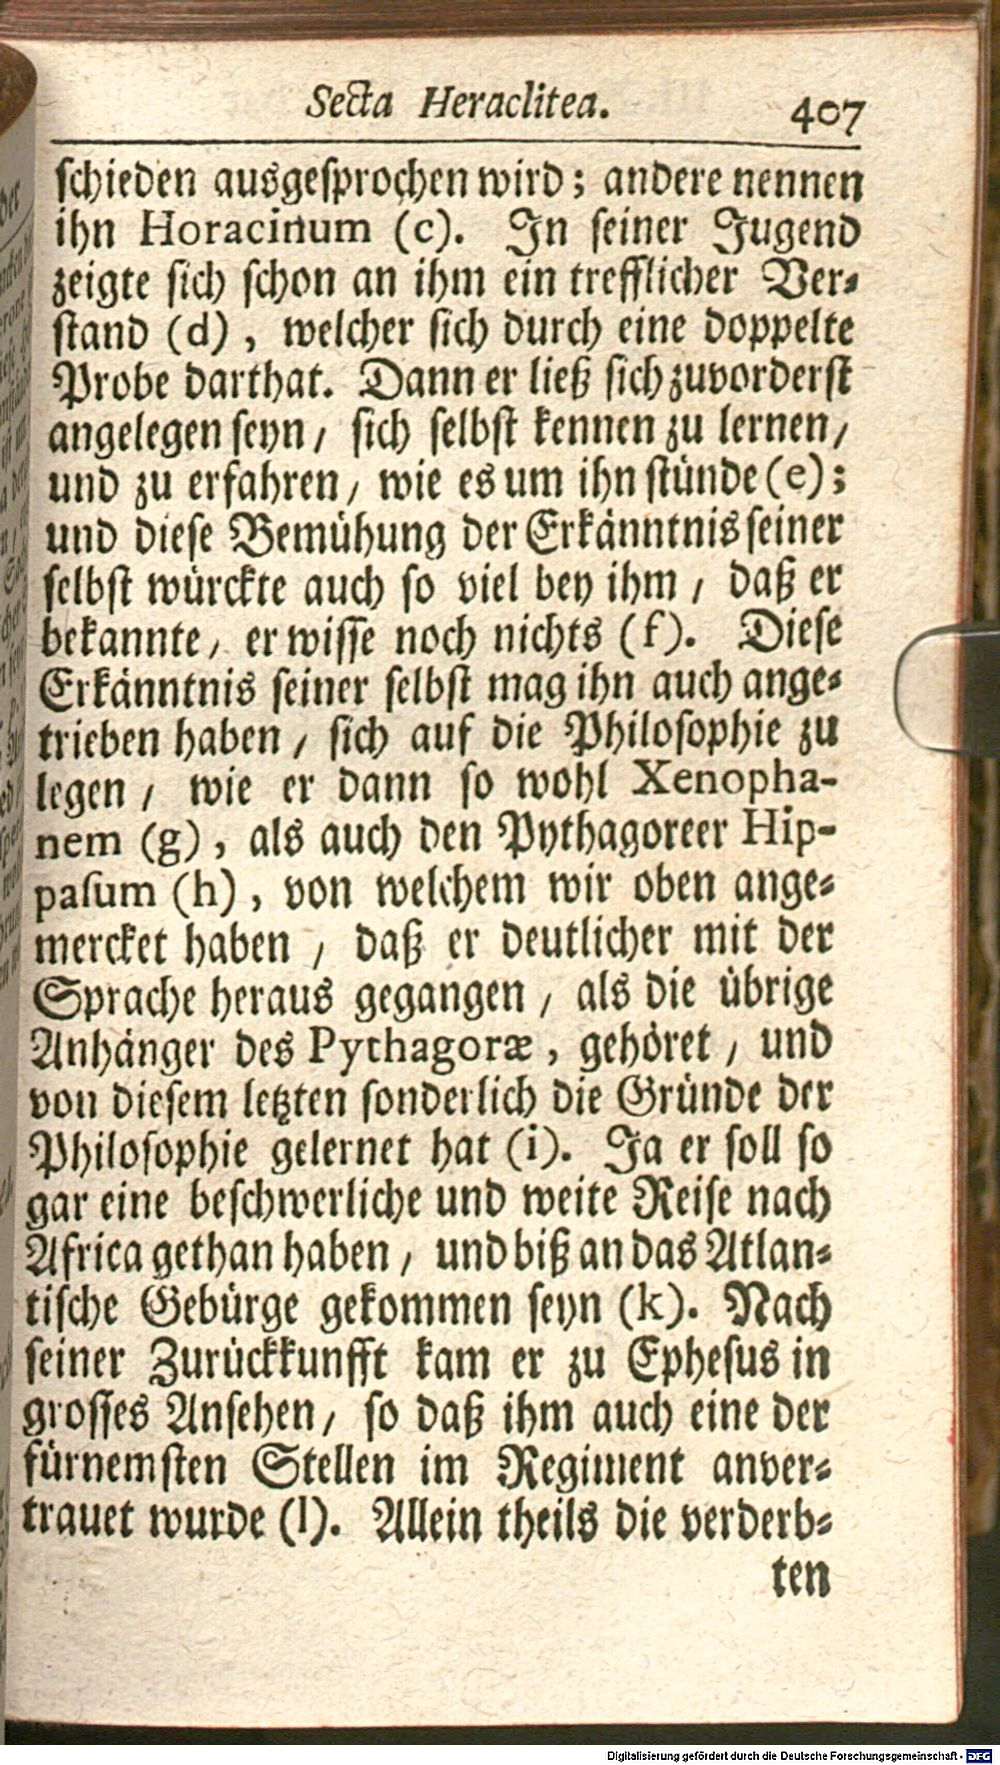 Secta Heraclitea. 407
schieden ausgesprochen wird; andere nennen
ihn Horacinum (c). In seiner Jugend
zeigte sich schon an ihm ein trefflicher Ver-
stand (d), welcher sich durch eine doppelte
Probe darthat. Dann er ließ sich zuvorderst
angelegen seyn/ sich selbst kennen zu lernen/
und zu erfahren/ wie es um ihn stünde (e);
und diese Bemühung der Erkänntnis seiner
selbst würckte auch so viel bey ihm/ daß er
bekannte/ er wisse noch nichts (f). Diese
Erkänntnis seiner selbst mag ihn auch ange-
trieben haben/ sich auf die Philosophie zu
legen/ wie er dann so wohl Xenopha-
nem (g), als auch den Pythagoreer Hip-
pasum (h), von welchem wir oben ange-
mercket haben/ daß er deutlicher mit der
Sprache heraus gegangen/ als die übrige
Anhänger des Pythagoræ, gehöret/ und
von diesem letzten sonderlich die Gründe der
Philosophie gelernet hat (i). Ja er soll so
gar eine beschwerliche und weite Reise nach
Africa gethan haben/ und biß an das Atlan-
tische Gebürge gekommen seyn (k). Nach
seiner Zurückkunfft kam er zu Ephesus in
grosses Ansehen/ so daß ihm auch eine der
fürnemsten Stellen im Regiment anver-
trauet wurde (l). Allein theils die verderb-
ten
Digitalisierung gefördert durch die Deutsche Forschungsgemeinschaft - DFG